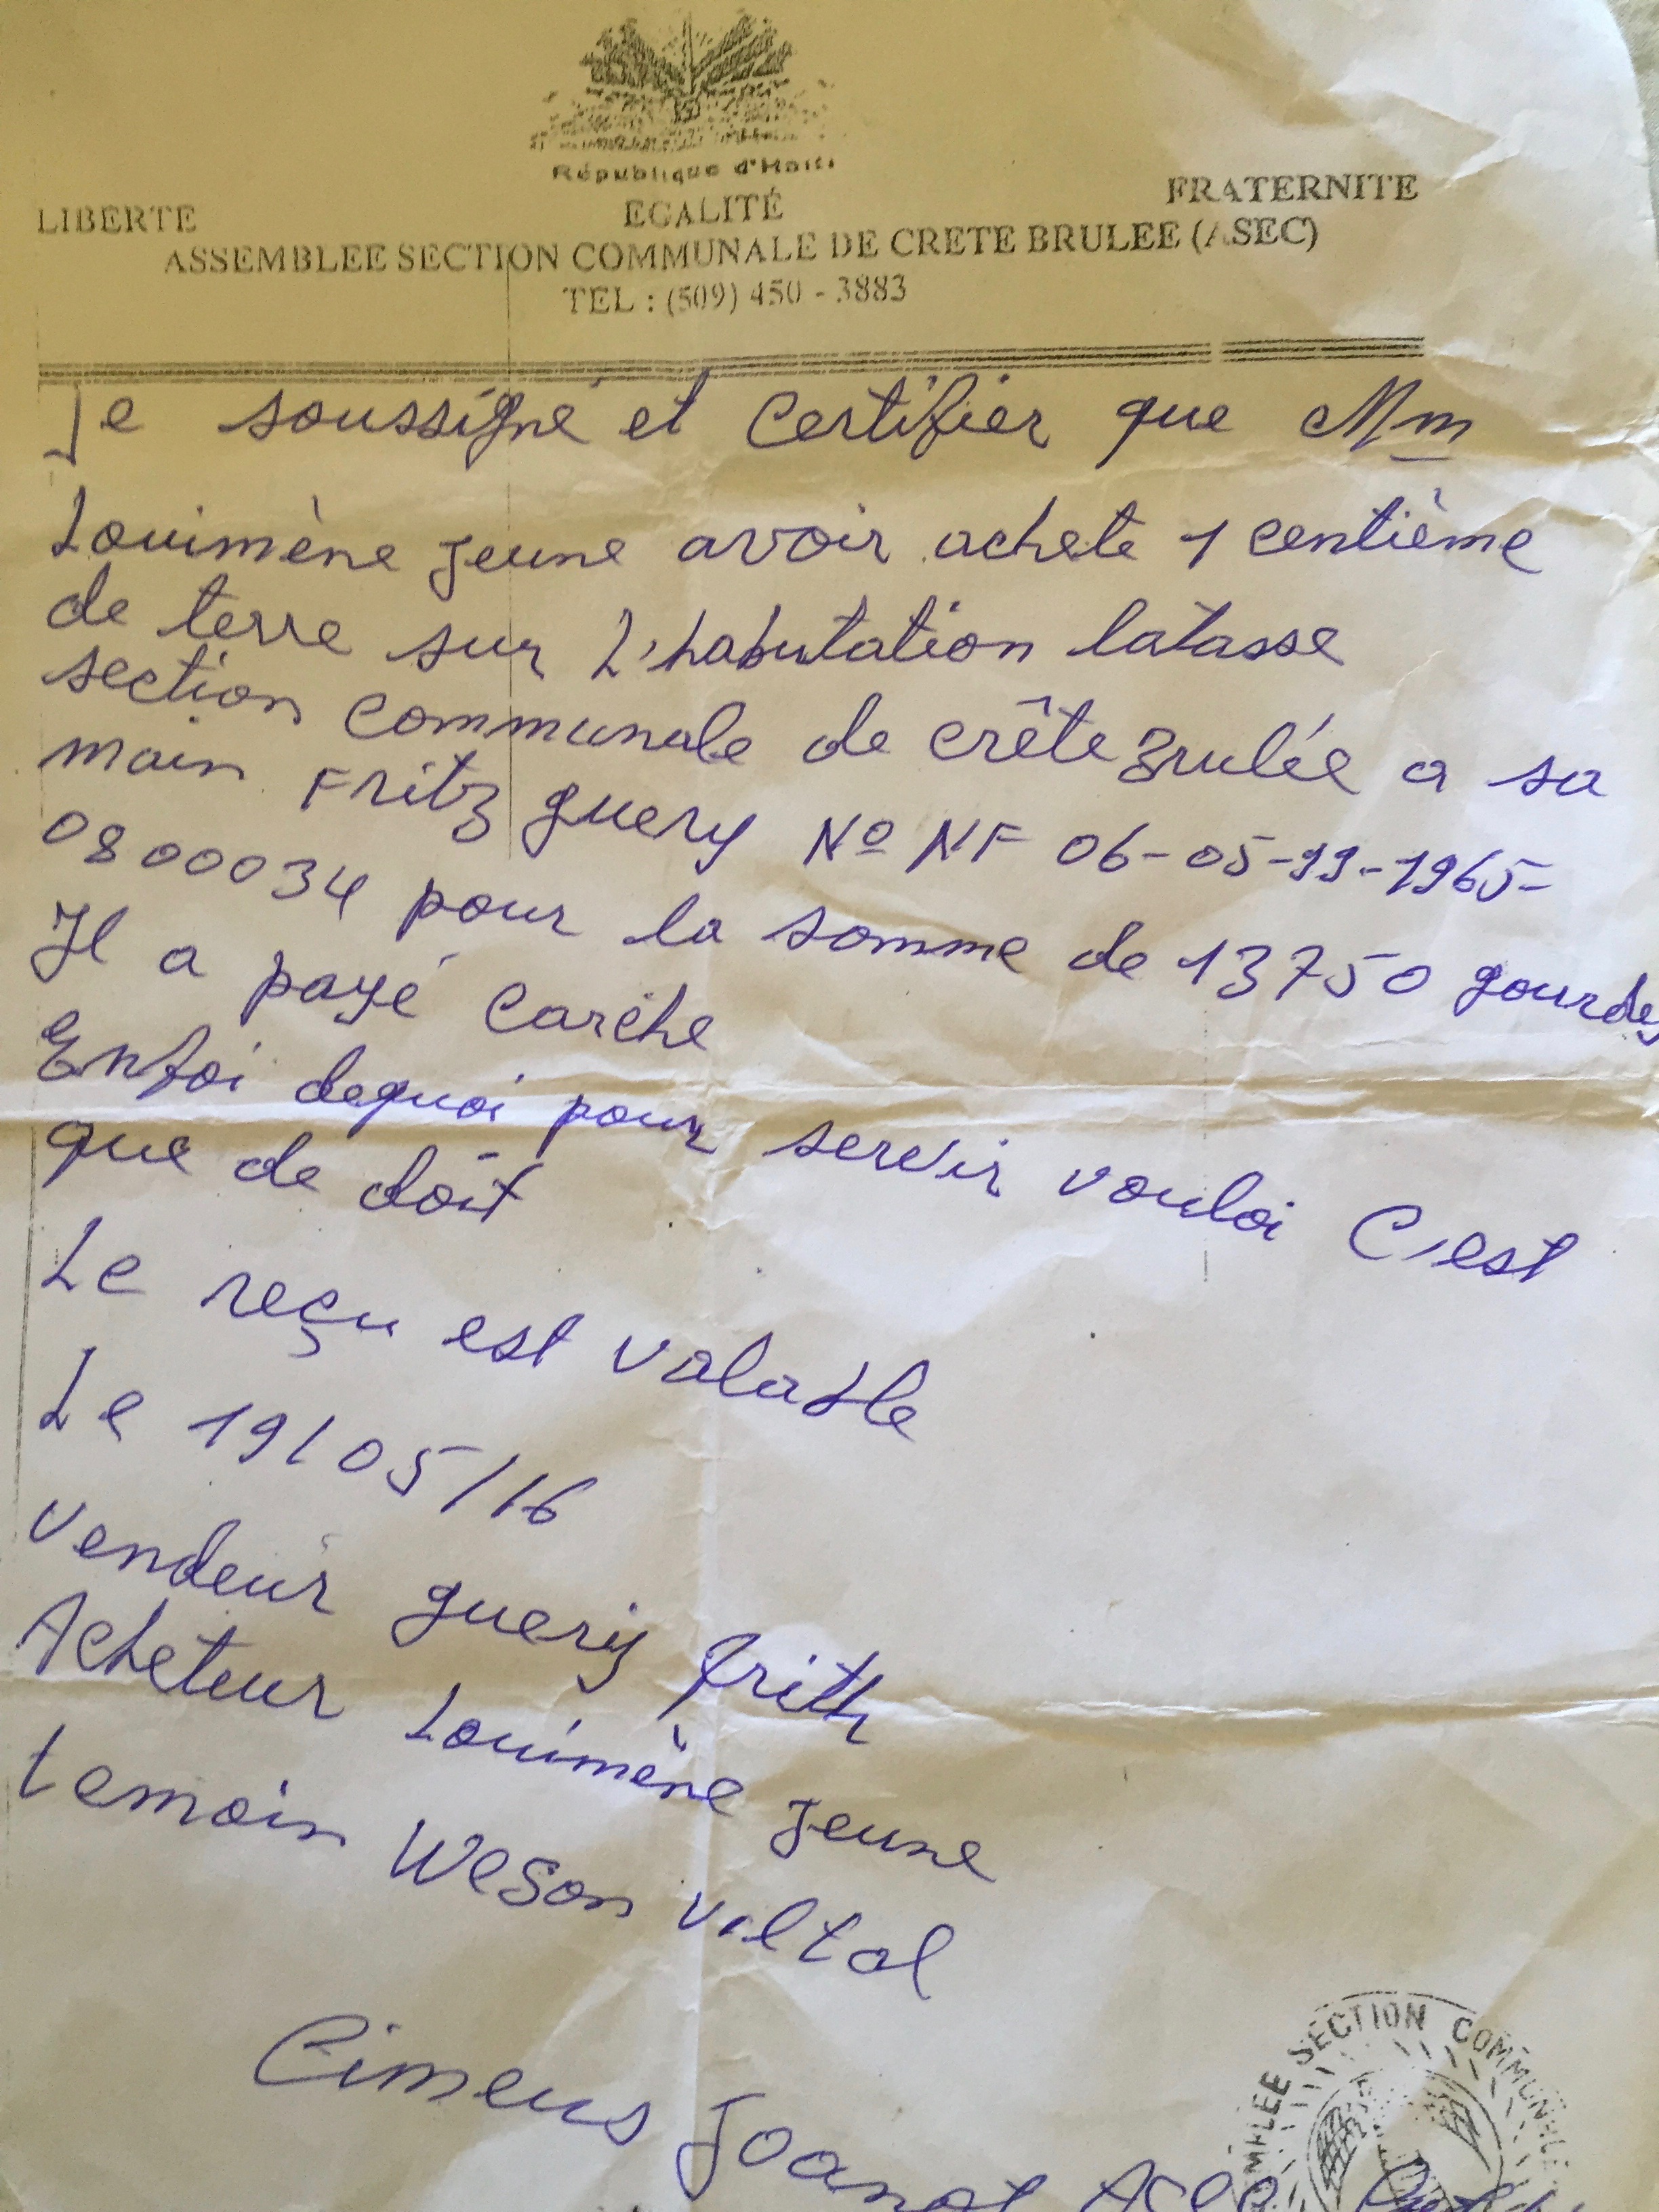 République d'Haiti
LIBERTE EGALITÉ FRATERNITE
ASSEMBLEE SECTION COMMUNALE DE CRETE BRULEE (ASEC)
TEL : (509) 450 - 3883
Je soussigné et Certifier que Mm
Louimène Jeune avoir achete 1 centième
de terre sur L'habutation latasse
section Communale de crête Brulée a sa
main Fritz guery No NF 06-05-99-1965-
0800034 pour la somme de 13750 gourdes
Il a payé Carche
Enfoi dequoi pour servir vouloi C'est
que de doit
Le reçu est valable
Le 19/05/16
vendeur guery frith
Acheteur Louimène Jeune
temoin Weson viltal
Cimeus Joanot
SECTION COMMUNALE